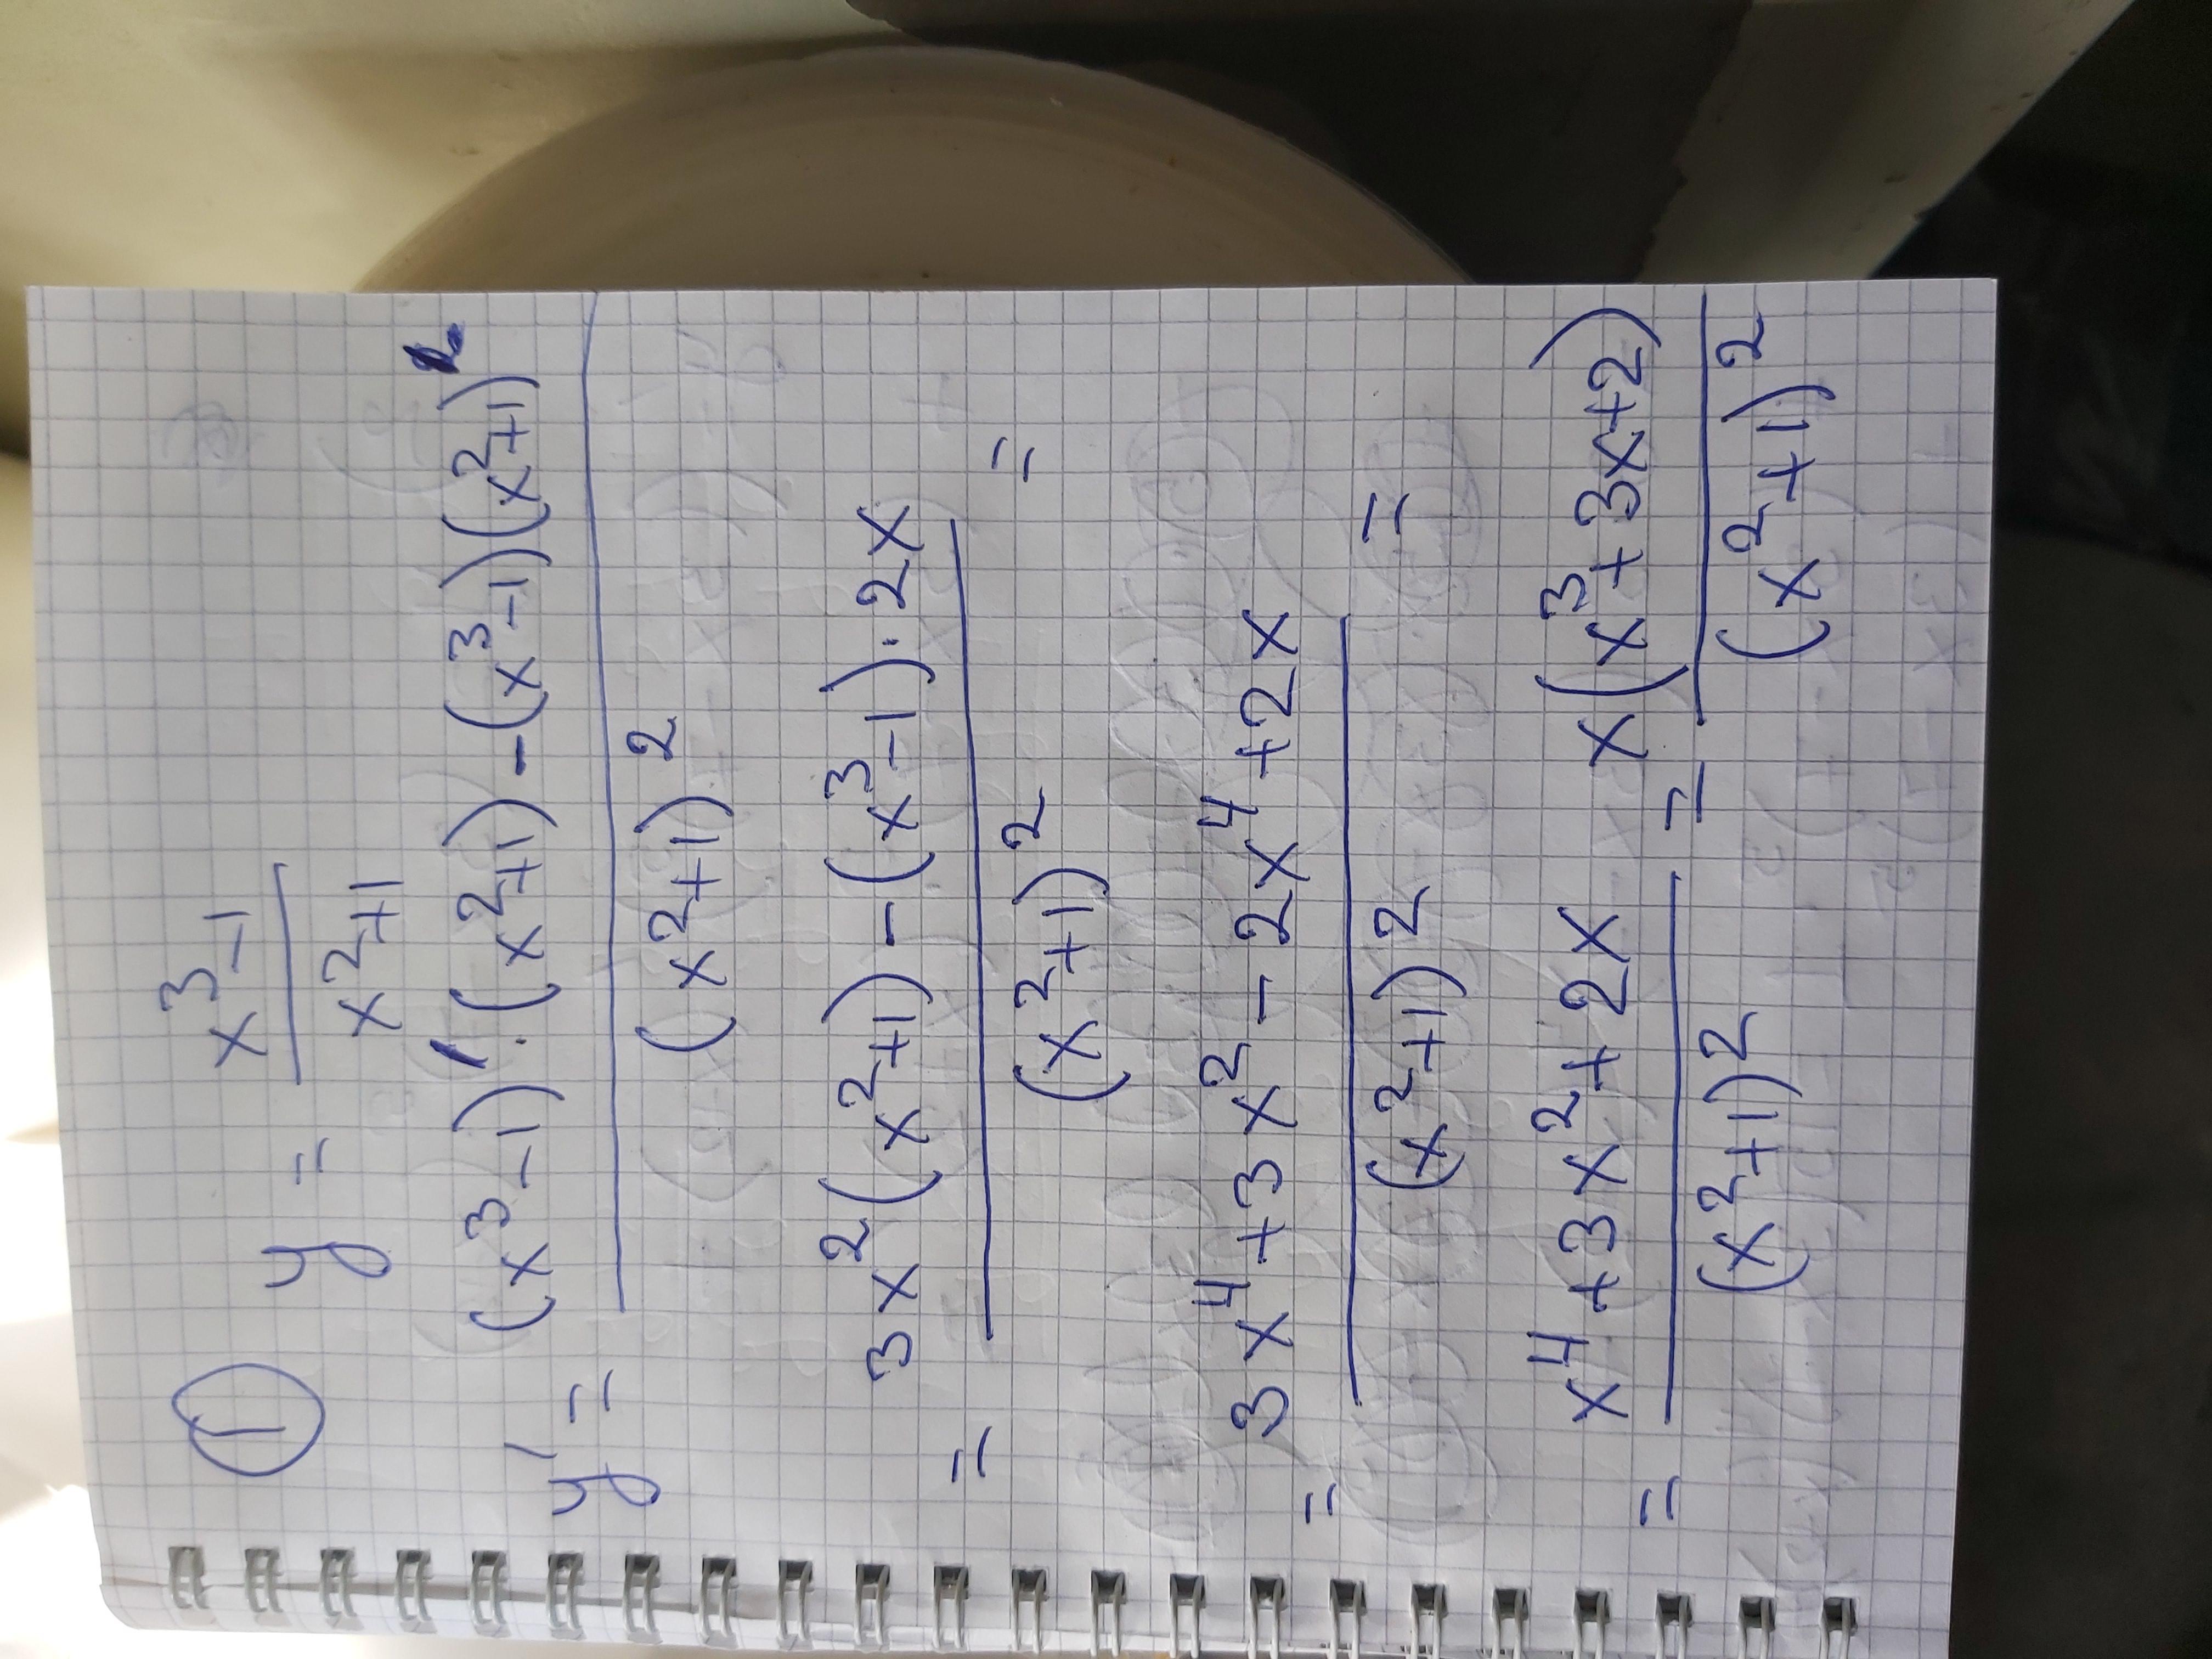 ① y = \frac{x^3-1}{x^2+1}
y' = \frac{(x^3-1)' \cdot (x^2+1) - (x^3-1)(x^2+1)'}{(x^2+1)^2}
= \frac{3x^2(x^2+1) - (x^3-1) \cdot 2x}{(x^2+1)^2} =
= \frac{3x^4+3x^2-2x^4+2x}{(x^2+1)^2} =
= \frac{x^4+3x^2+2x}{(x^2+1)^2} = \frac{x(x^3+3x+2)}{(x^2+1)^2}